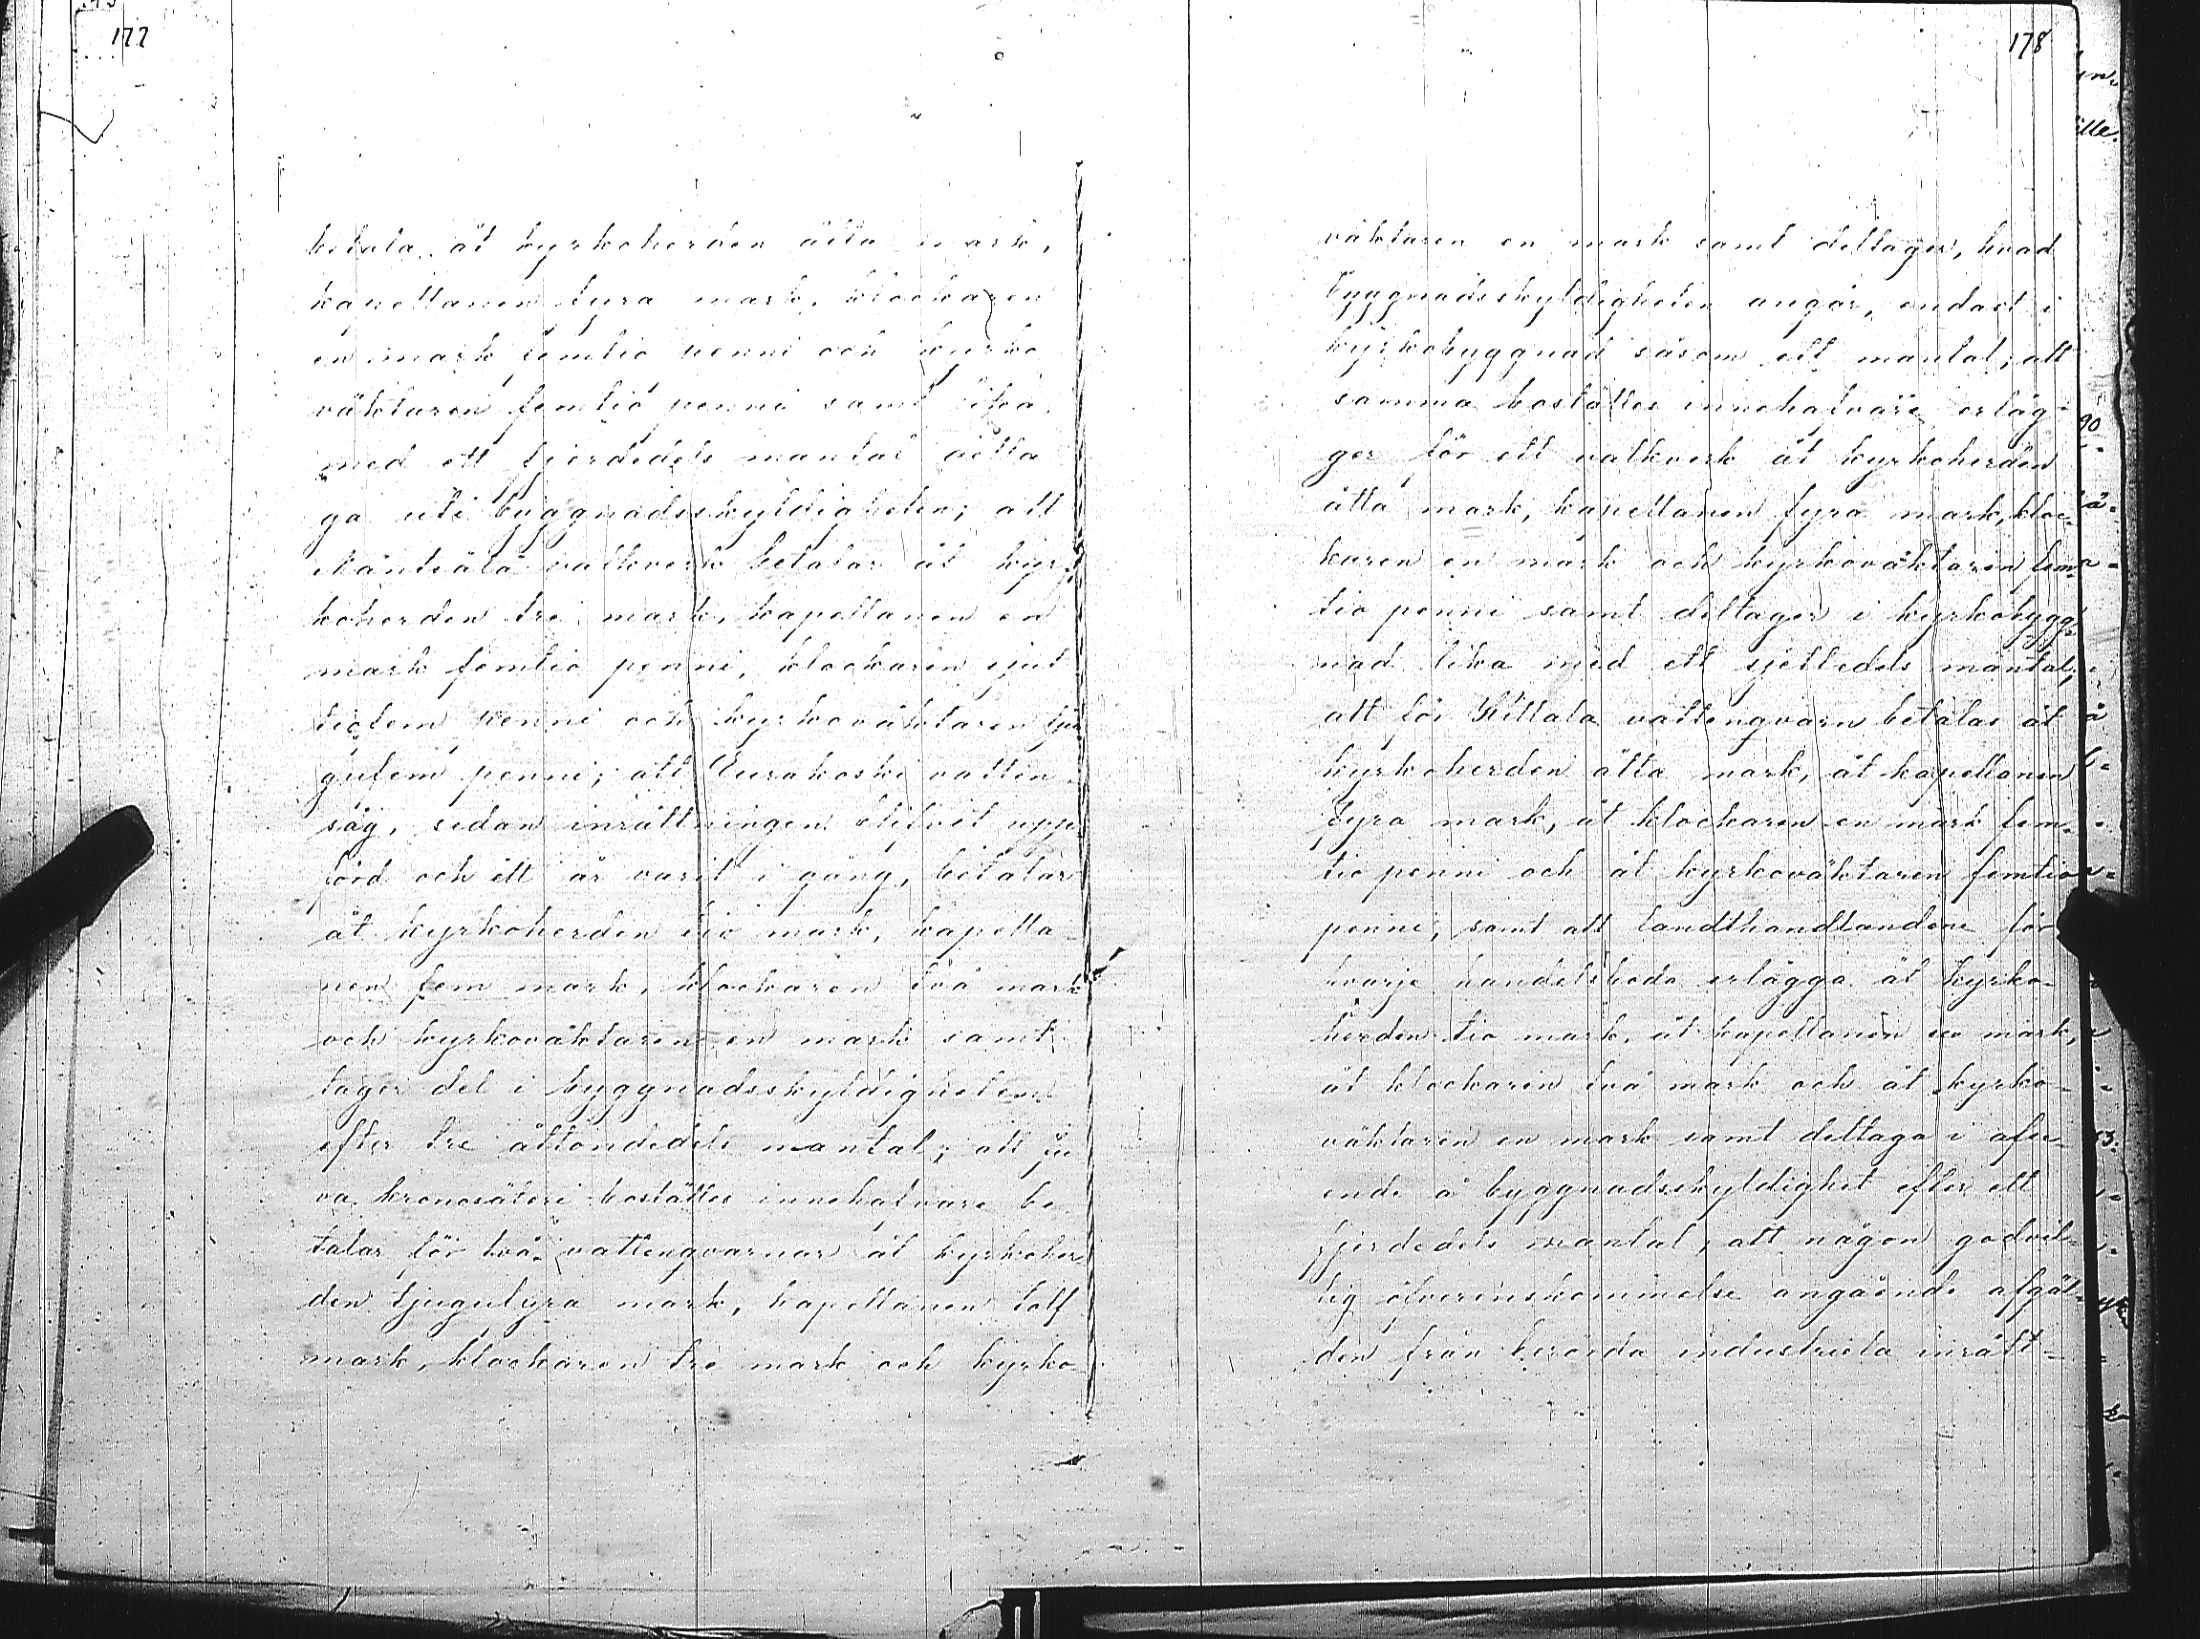 177
betala åt kyrkoherden åtta mark,
kapellanen fyra mark, klockaren
en mark femtio penni och kyrko
väktaren femtio penni samt lika
med ett fjerdedels mantal delta
ga uti byggnadsskyldigheten; att
Mäntsälä valkverk betalar åt kyr-
koherden tre mark, kapellanen en
mark femtio penni, klockaren sjut
tiofem penni och kyrkoväktaren tju
gufem penni; att Eurakoski vatten
såg, sedan inrättningen blifvit upp
förd och ett år varit i gång, betalar
åt kyrkoherden tio mark, kapella
nen fem mark, klockaren två mark
och kyrkoväktaren en mark samt
tager del i byggnadsskyldigheten
efter tre åttondedels mantal; att
va kronosäteri boställes innehafvare be
talar för två vattenqvarnar åt kyrkoher
den tjugufyra mark, kapellanen tolf
mark, klockaren tre mark och kyrko
178
väktaren en mark samt deltager, hvad
byggnadsskyldigheten angår, endast i
kyrkobyggnad såsom ett mantal; att
samma boställes innehafvare erläg-
ger för ett valkverk åt kyrkoherden
åtta mark, kapellanen fyra mark, kloc-
karen en mark och kyrkoväktaren fem-
tio penni samt deltager i kyrkobygg-
nad lika med ett sjettedels mantal;
att för Kittala vattenqvarn betalas åt
kyrkoherden åtta mark, åt kapellanen
fyra mark, åt klockaren en mark fem-
tio penni och åt kyrkoväktaren femtio
penni, samt att landthandlandene för
hvarje handelsbod erlägga åt kyrko-
herden tio mark, åt kapellanen mark,
åt klockaren två mark och åt kyrko-
väktaren en mark samt deltaga i afse-
ende å byggnadsskyldighet efter ett
fjerdedels mantal; att någon godvil-
lig öfverenskommelse angående afgäl-
den från berörda industriela inrätt-